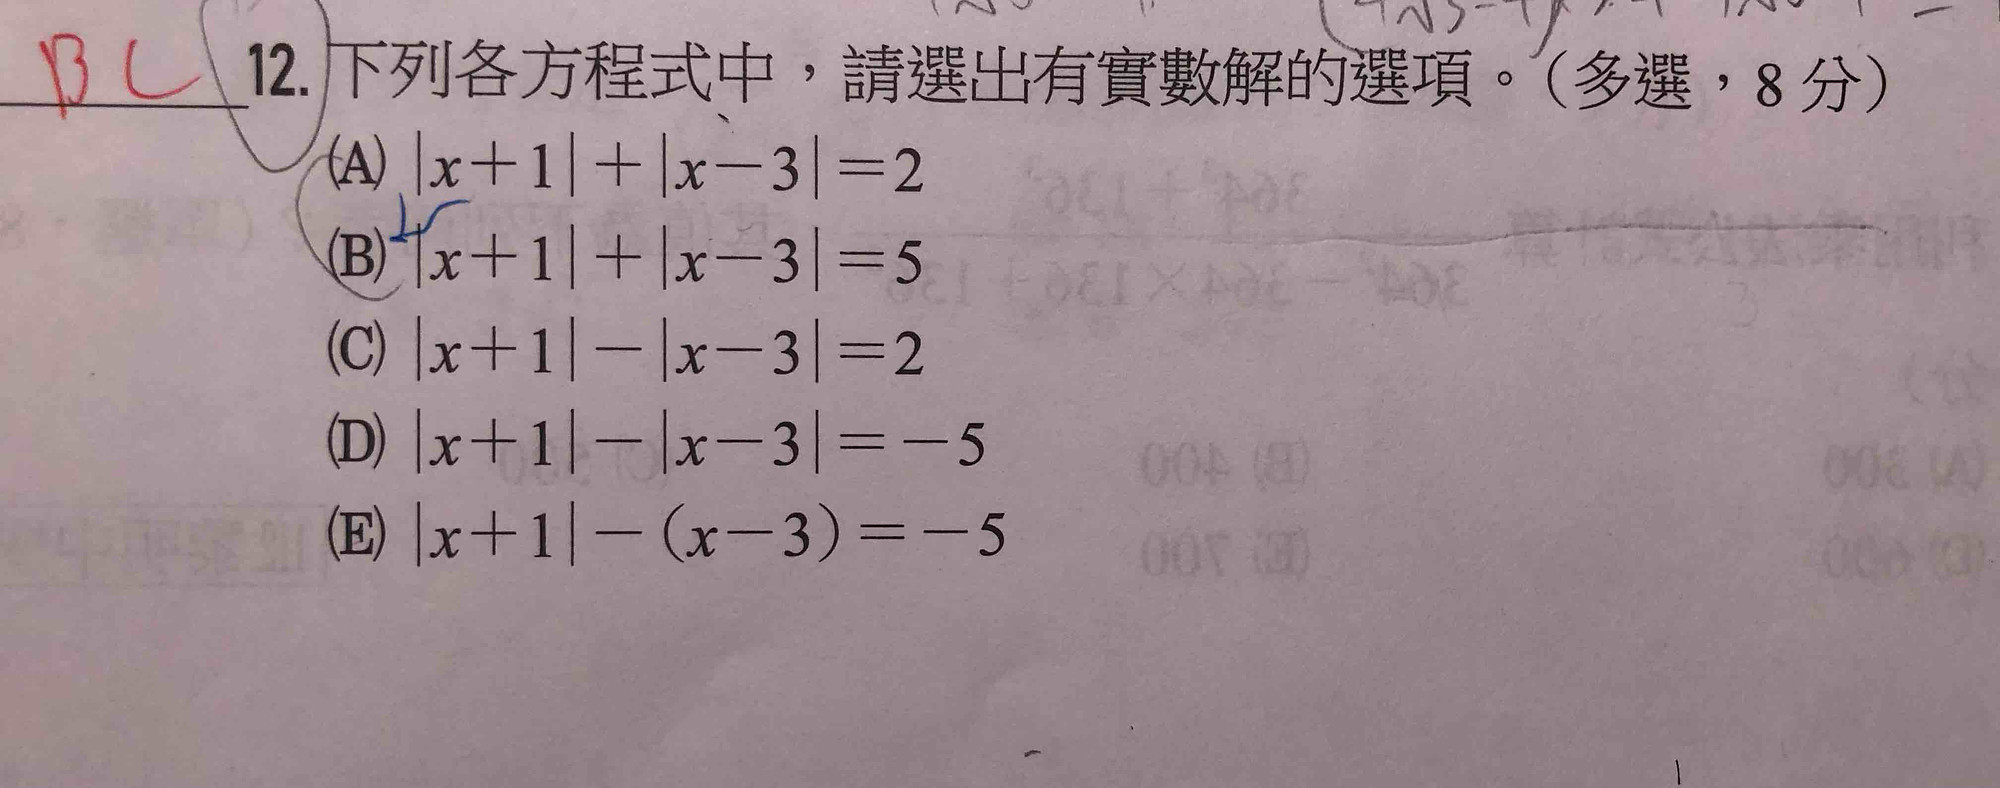 BC 12. 下列各方程式中，請選出有實數解的選項。（多選，8 分）
(A) |x＋1|＋|x－3|＝2
(B) |x＋1|＋|x－3|＝5
(C) |x＋1|－|x－3|＝2
(D) |x＋1|－|x－3|＝－5
(E) |x＋1|－（x－3）＝－5